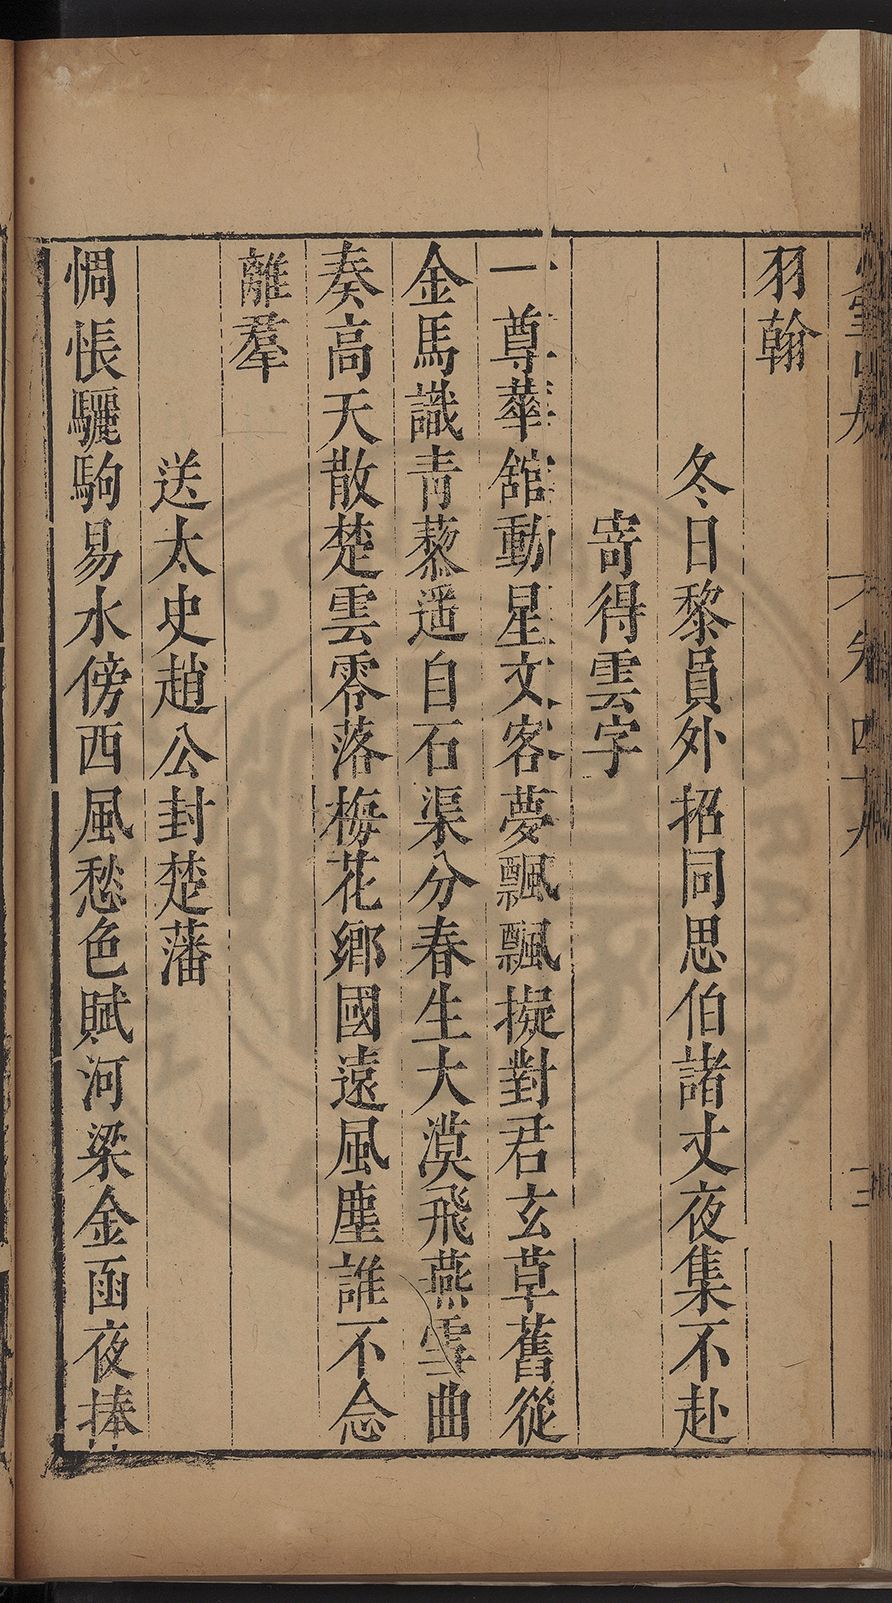 羽翰
冬日黎員外招同思伯諸丈夜集不赴
寄得雲字
一尊華館動星文客夢飄飄擬對君玄草舊從
金馬識青藜遥自石渠分春生大漠飛燕雪曲
奏高天散楚雲零落梅花鄉國遠風塵誰不念
離羣
送太史趙公封楚藩
惆悵驪駒易水傍西風愁色賦河梁金函夜捧